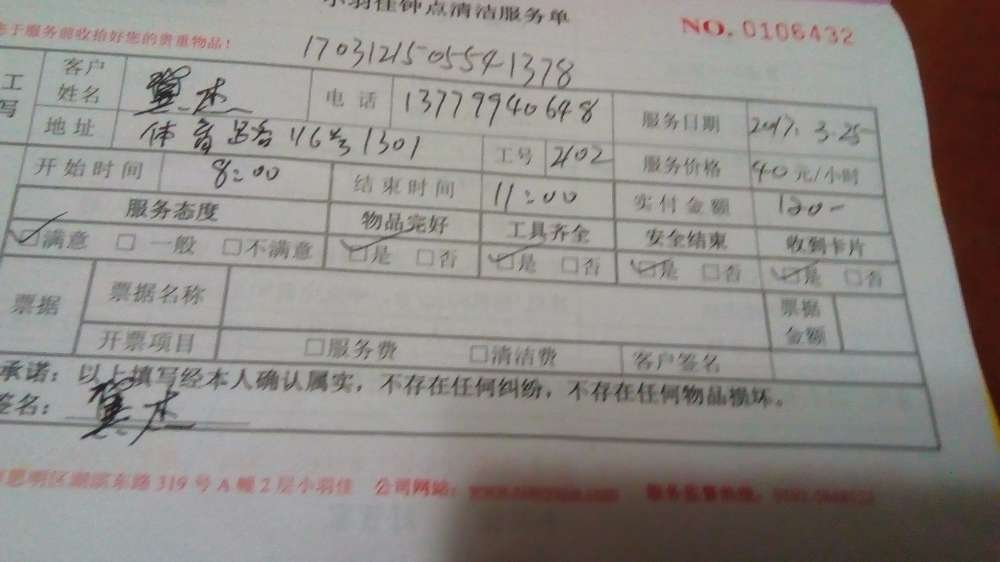 小羽佳钟点清洁服务单
NO. 0106432
于服务前收拾好您的贵重物品!
170312150554 1378
工
写
客户姓名 电话 13779940648 服务日期 2017. 3. 25
地址 体育路 116号1301 工号 2102 服务价格 40 元/小时
开始时间 8:00 结束时间 11:00 实付金额 120-
服务态度 物品完好 工具齐全 安全结束 收到卡片
☑满意 □ 一般 □不满意 ☑是 □否 ☑是 □否 ☑是 □否 ☑是 □否
票据 票据名称 票据金额
开票项目 □服务费 □清洁费 客户签名
承诺:以上填写经本人确认属实,不存在任何纠纷,不存在任何物品损坏。
签名:
思明区湖滨东路 319 号 A 幢 2 层小羽佳 公司网站: 服务监督热线: